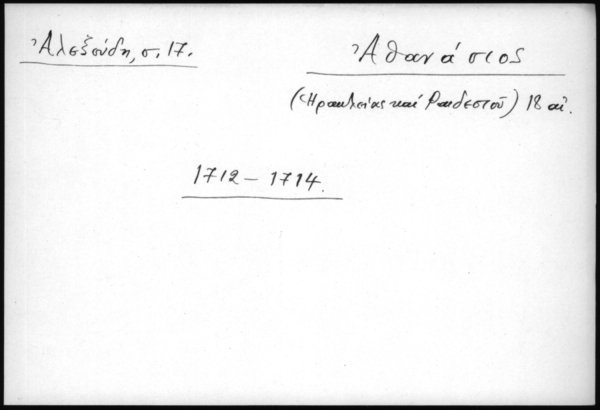 Ἀλεξούδη, σ. 17.
Ἀθανάσιος
(Ἡρακλείας καί Ραιδεστοῦ) 18 αἰ.
1712 – 1714.